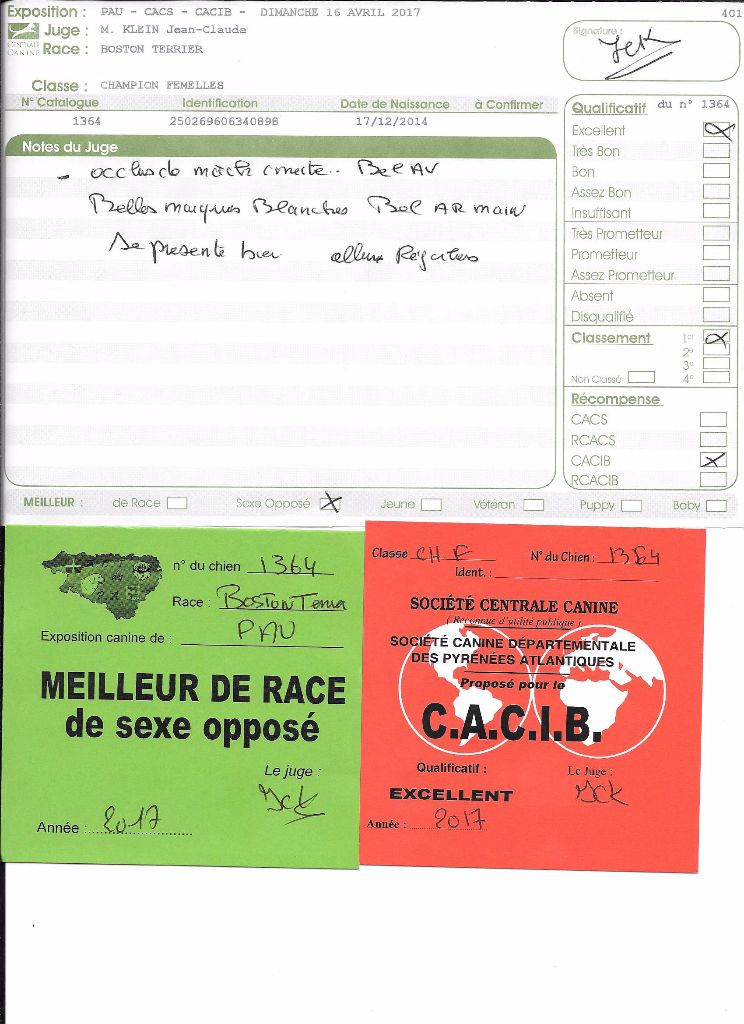 Exposition : PAU - CACS - CACIB - DIMANCHE 16 AVRIL 2017
401
Juge : M. KLEIN Jean-Claude
CENTRALE CANINE
Race : BOSTON TERRIER
Signature :
Classe : CHAMPION FEMELLES
N° Catalogue Identification Date de Naissance à Confirmer
1364 250269606340898 17/12/2014
Notes du Juge
Bel AV
Belles marques Blanches Bel AR main
Se presente bien allure
Qualificatif du n° 1364
Excellent X
Très Bon
Bon
Assez Bon
Insuffisant
Très Prometteur
Prometteur
Assez Prometteur
Absent
Disqualifié
Classement 1er X
2e
3e
Non Classé 4e
Récompense
CACS
RCACS
CACIB X
RCACIB
MEILLEUR : de Race Sexe Opposé X Jeune Vétéran Puppy Baby
n° du chien 1364
Race : Boston Terrier
Exposition canine de : PAU
MEILLEUR DE RACE
de sexe opposé
Le juge :
JCK
Année : 2017
Classe CH F N° du Chien : 1364
Ident. :
SOCIÉTÉ CENTRALE CANINE
( Reconnue d'utilité publique )
SOCIÉTÉ CANINE DÉPARTEMENTALE
DES PYRÉNÉES ATLANTIQUES
Proposé pour le
C.A.C.I.B.
Qualificatif : Le Juge :
EXCELLENT JCK
Année : 2017